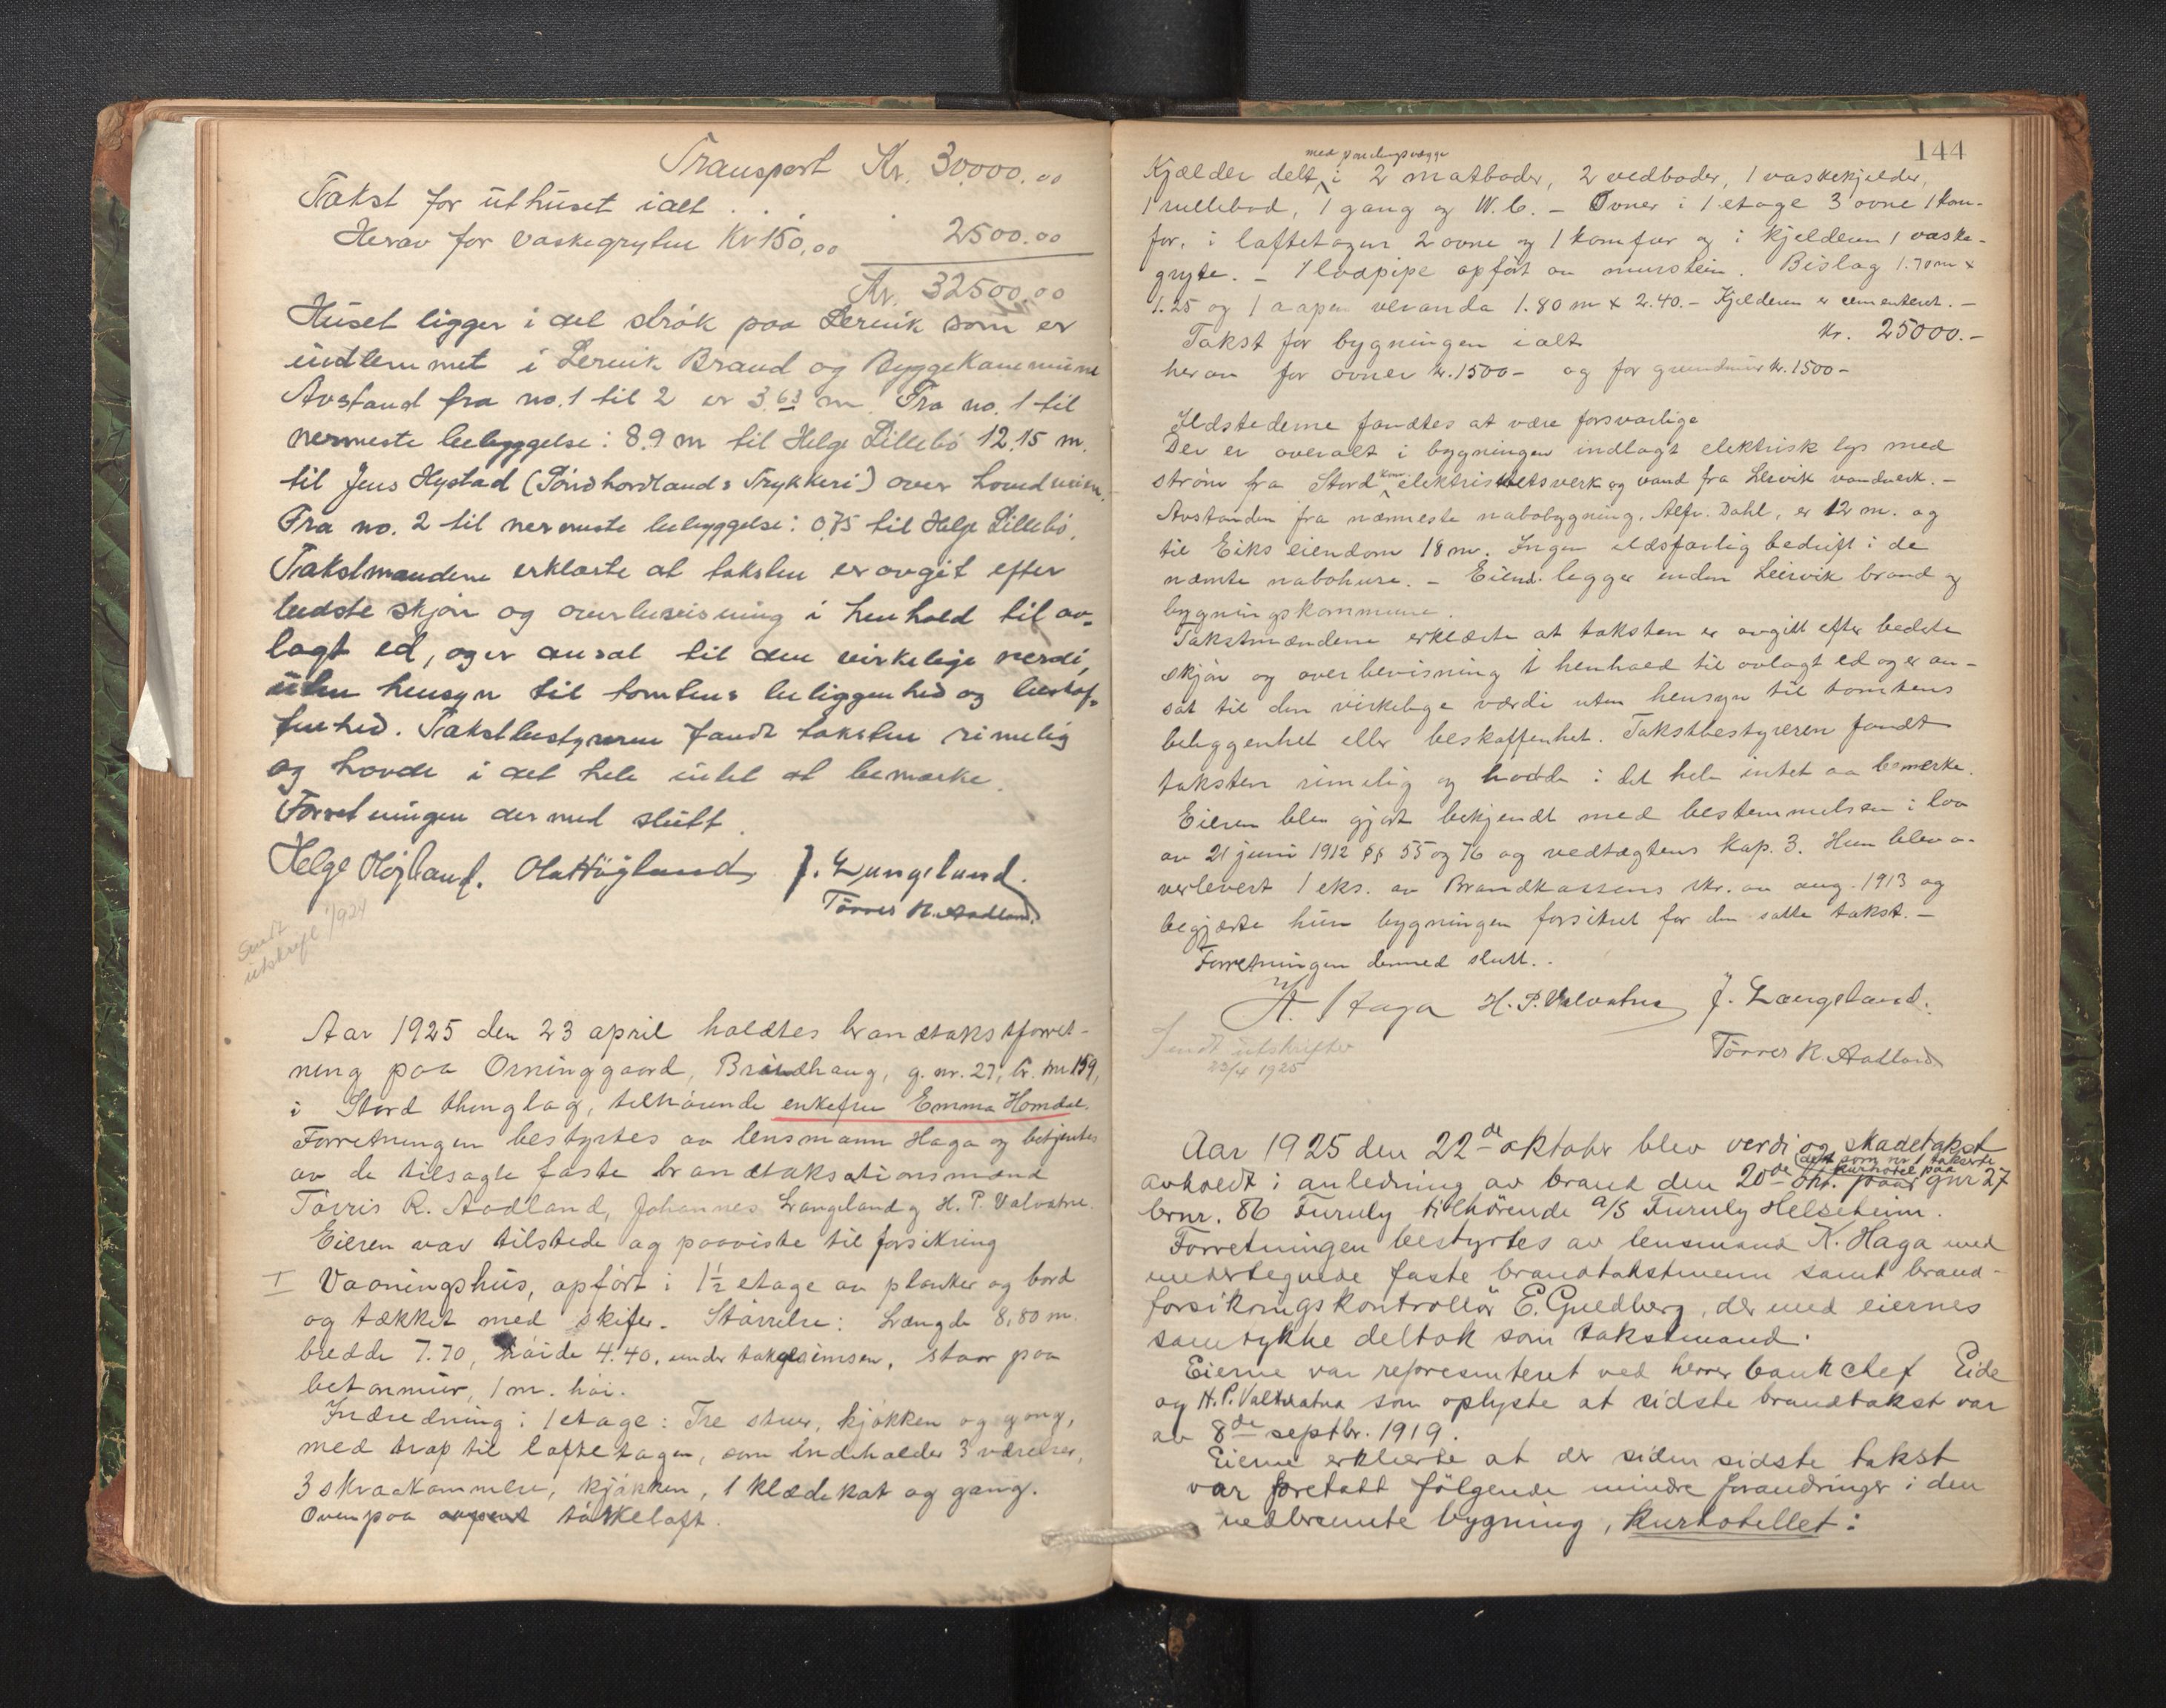 Transport Kr. 30000.00
Takst for uthuset ialt . . . . 2500.00
Herav for vaskegryten Kr 150,00
Kr. 32500,00
Huset ligger i det strøk paa Lervik som er
indlemmet i Lervik Brand og Byggekommune
Avstand fra no. 1 til 2 er 3.63 m. Fra no. 1 til
nermeste bebyggelse: 8.9 m til Helge Lillebö 12,15 m.
til Jens Hystad (Söndhordlands Trykkeri) over
Fra no. 2 til nermeste bebyggelse: 0,75 til Helge Lillebö.
Takstmændene erklærte at taksten er avgit efter
bedste skjön og overbevisning i henhold til av-
lagt ed, og er ansat til den virkelige verdi,
uten hensyn til tomtens beliggenhed og beskaf-
fenhed. Takstbestyreren fandt taksten rimelig
og havde i det hele intet at bemærke.
Forretningen dermed slutt.
Helge Höjland. Ola Höyland J. Langeland.
Törres R. Aadland
Sendt
utskrift 1/1924
Aar 1925 den 23 april holdtes brandtakstforret-
ning paa Orninggaard, Brandhaug, g. nr. 27, br. nr 159,
i Stord thinglag, tilhörende enkefru Emma Homdal.
Forretningen bestyrtes av lensmann Haga og betjentes
av de tilsagte faste brandtaksationsmænd
Törris R. Aadland, Johannes Langeland og H. P. Valvatne.
Eieren var tilstede og paaviste til forsikring
I Vaaningshus, opfört i 1½ etage av planker og bord
og tækket med skifer. Störrelse: Længde 8,80 m.
bredde 7.70, höide 4.40. under takgesimsen, staar paa
betonmur, 1 m. höi.
Indredning: 1 etage: Tre stuer, kjökken og gang,
med trap til loftetagen, som indeholder 3 værelser,
3 skraakammere, kjökken, 1 klædekot og gang.
Ovenpaa törkeloft.
144
med
Kjælder delt i 2 matboder, 2 vedboder, 1 vaskekjelder,
1 rullebod, 1 gang og W.C. – Ovner i 1 etage 3 ovne 1 kom-
fyr, i loftetagen 2 ovne og 1 komfur og i kjelderen 1 vaske-
gryte. – 1 luvpipe opfört av murstein. Bislag 1.70 m x
1.25 og 1 aapen veranda 1.80 m x 2.40. – Kjelderen er cementeret. –
Takst for bygningen ialt kr. 25000.–
herav for ovner kr. 1500 – og for grundmur kr. 1500 –
Ildstederne fandtes at være forsvarlige
Der er overalt i bygningen indlagt elektrisk lys med
ström fra Stord kom. elektrisitetsverk og vand fra Lervik vandverk. –
Avstanden fra nærmeste nabobygning, Alfr. Dahl, er 12 m. og
til Eiks eiendom 18 m. Ingen ildsfarlig bedrift i de
nævnte nabohuse. – Eiend. ligger under Leirvik brand og
bygningskommune.
Takstmændene erklærte at taksten er avgitt efter bedste
skjön og overbevisning i henhold til avlagt ed og er an-
sat til den virkelige værdi uten hensyn til tomtens
beliggenhet eller beskaffenhet. Takstbestyreren fandt
taksten rimelig og hadde i det hele intet aa bemerke.
Eieren blev gjort bekjendt med bestemmelsen i lov
av 21 juni 1912 §§ 55 og 76 og vedtægtens Kap. 3. Hun blev o-
verlevert 1 eks. av Brandkassens skr. av aug. 1913 og
begjærte hun bygningen forsikret for den satte takst. –
Forretningen dermed slutt. .
K. Haga H. P. Valvatne J. Langeland.
Törres R. Aadland
Sendt utskrifter
23/4 1925
Aar 1925 den 22de oktober blev verdi og skadetakst
(det som nr 1 takserte
kurhotel paa
avholdt i anledning av brand den 20de okt. gnr 27
brnr. 86 Furuly tilhörende a/s Furuly Helseheim.
Forretningen bestyrtes av lensmand K. Haga med
undertegnede faste brandtakstmenn samt brand-
forsikringskontrollör E. Guldberg, der med eiernes
samtykke deltok som takstmand.
Eierne var representeret ved herrer bankchef Eide
og H. P. Valvatna som oplyste at sidste brandtakst var
av 8de septbr. 1919.
Eierne erklærte at der siden sidste takst
var foretatt fölgende mindre forandringer i den
nedbrente bygning, kurhotellet: